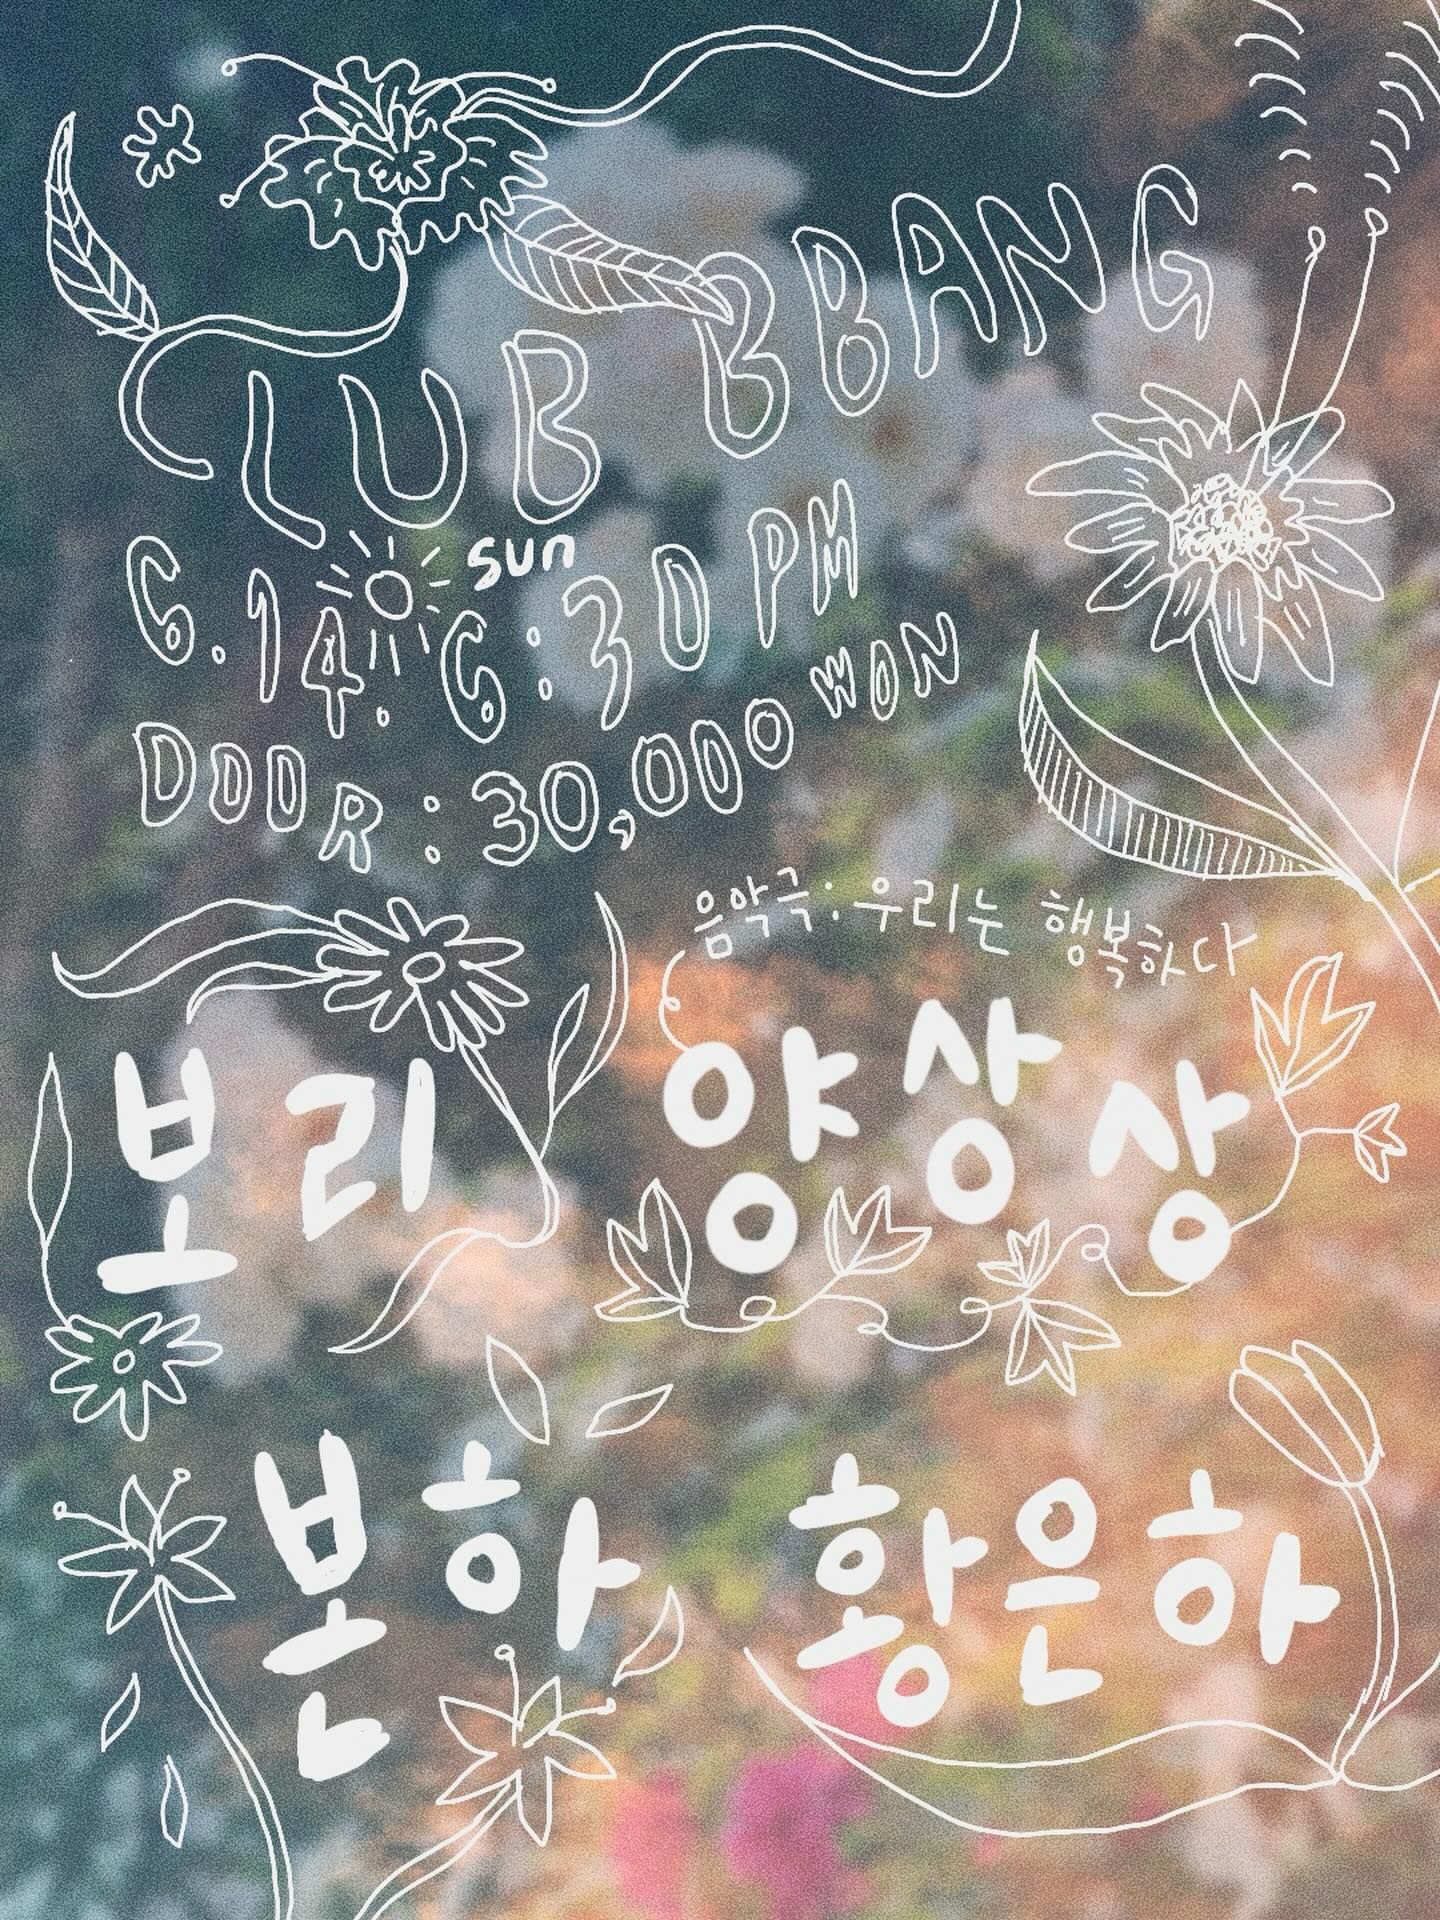 CLUB BBANG
6.14. sun 6:30 PM
DOOR : 30,000 WON
음악극: 우리는 행복하다
보리 양상상
본하 황은하